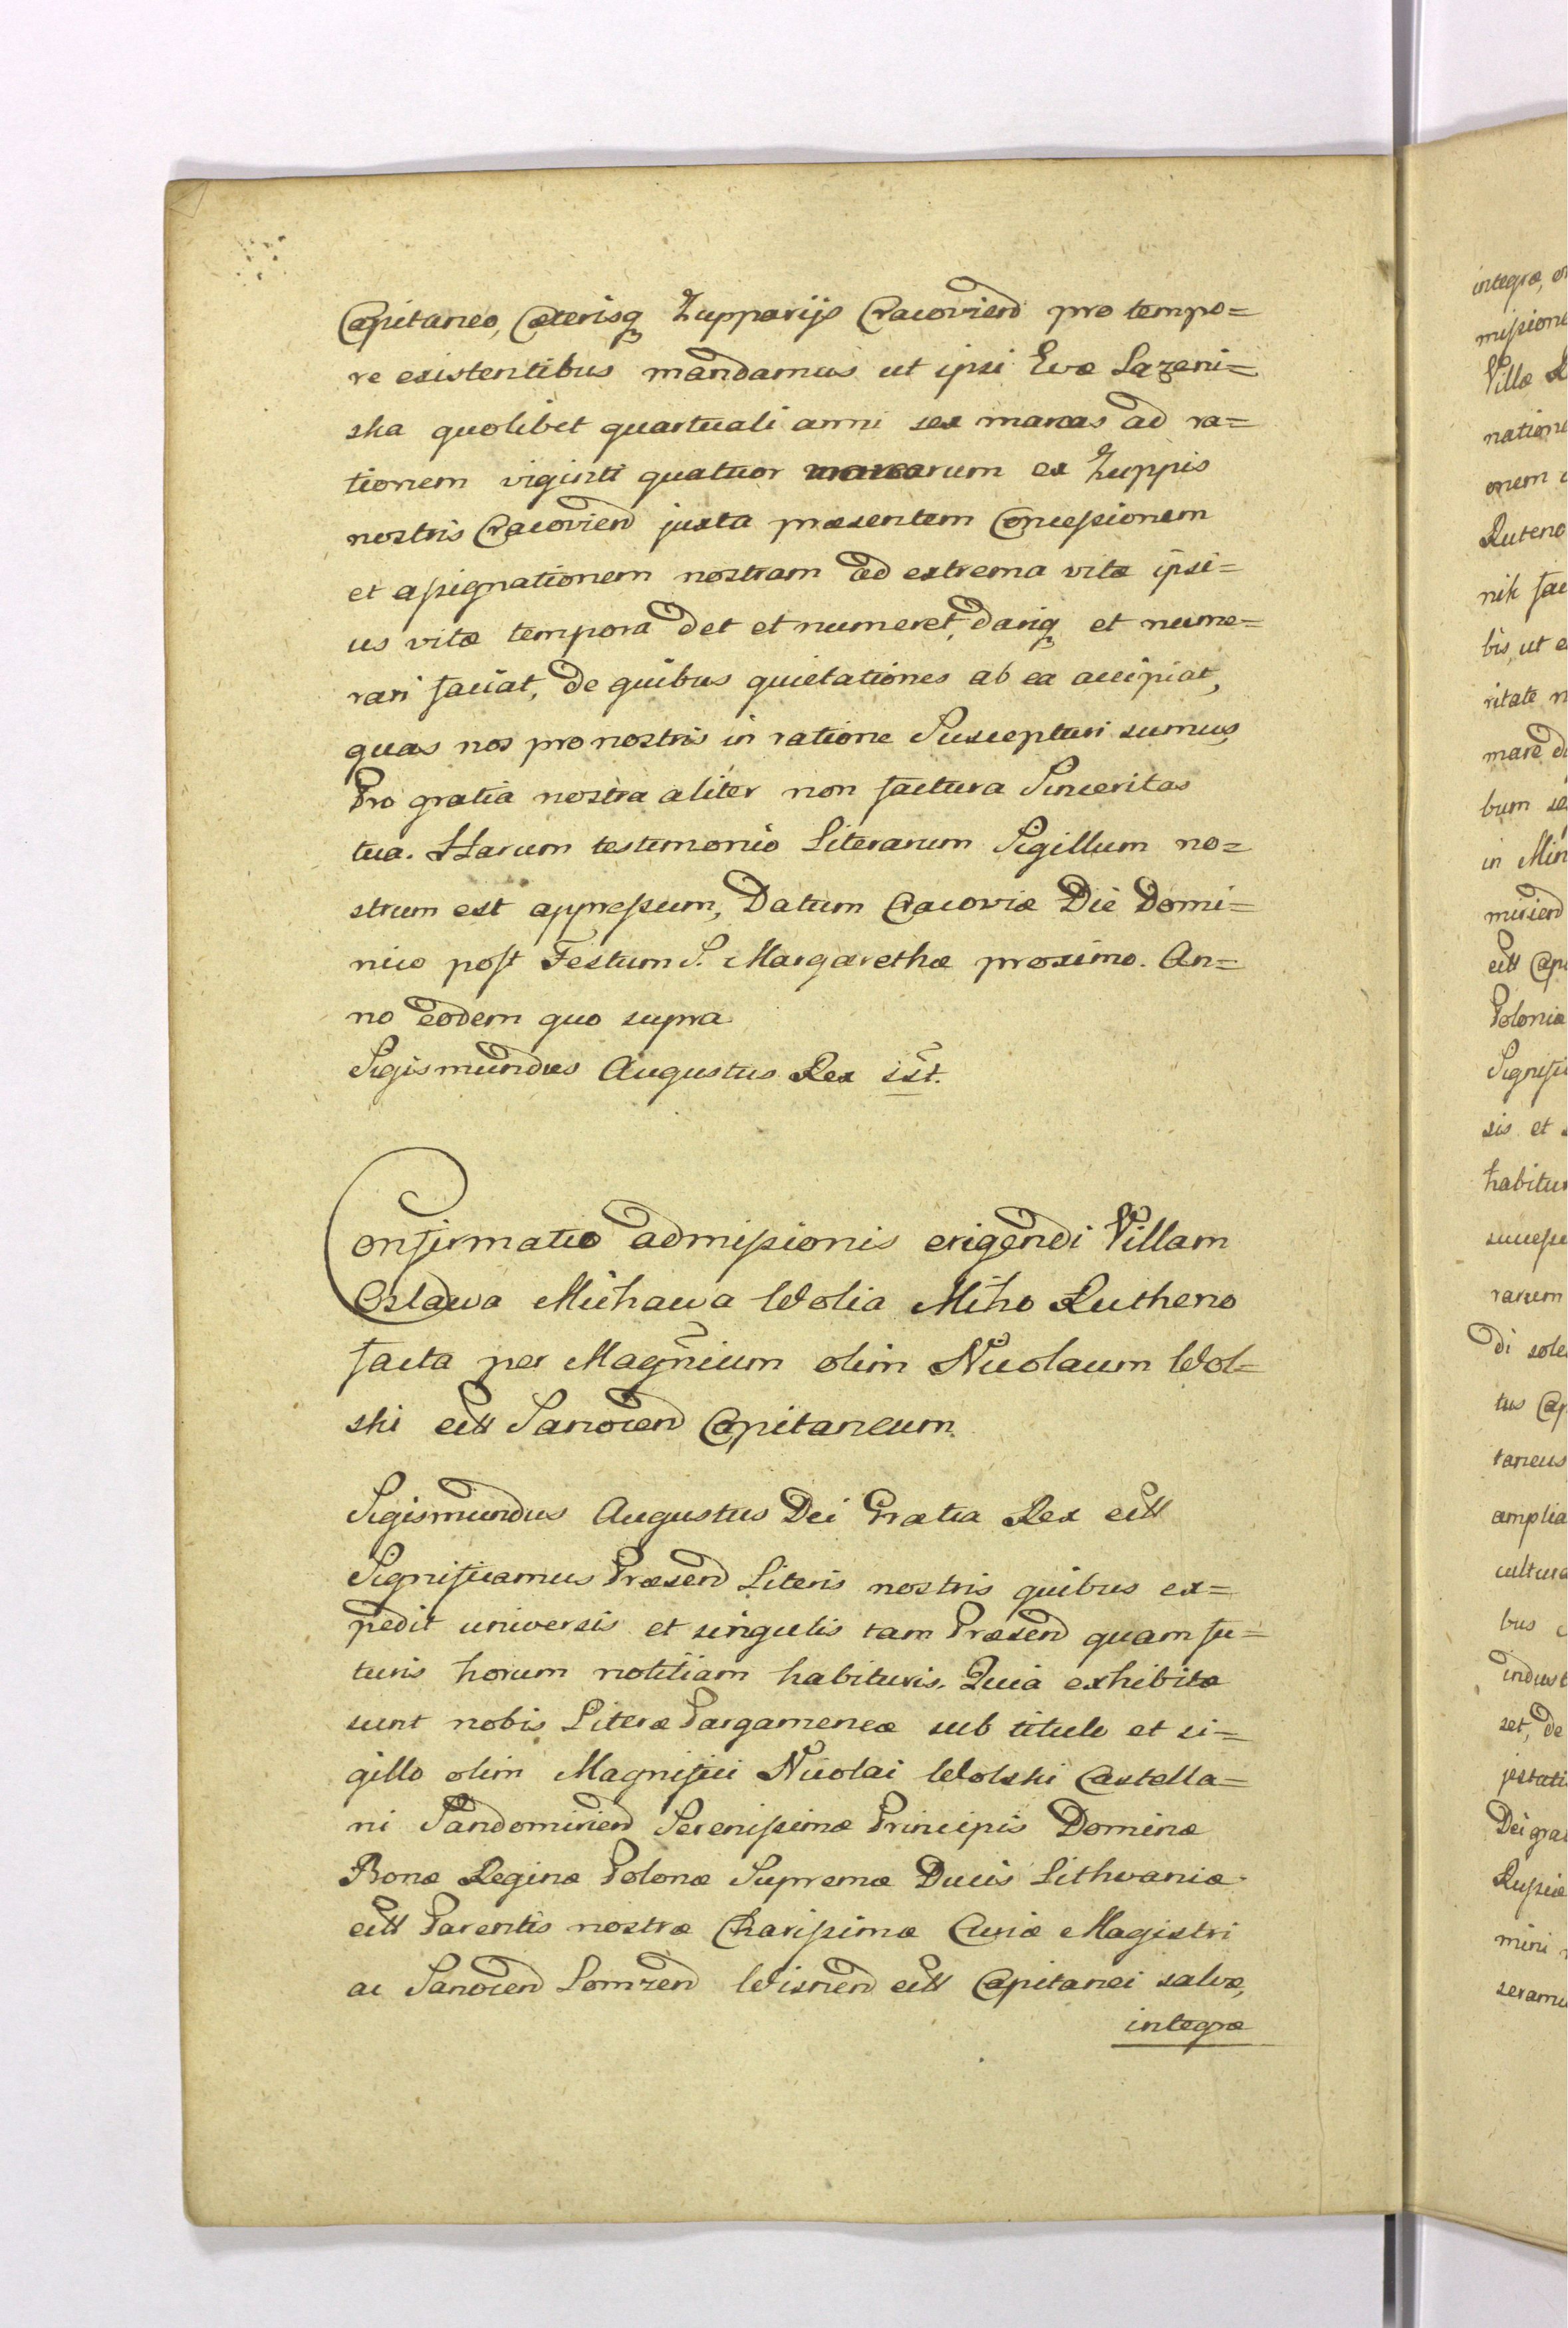 Capitaneo, Cæterisq Zupparijs Cracoviend pro tempo=
re existentibus mandamus ut ipsi Evæ Lazeni=
ska quolibet quartuali anni sex marcas ad ra=
tionem viginti quatuor marcarum ex Zuppis
nostris Cracoviend juxta præsentem Concessionem
et assignationem nostram ad extrema vitæ ipsi=
us vitæ tempora det et numeret, dariq et nume=
rari faciat, de quibus quietationes ab ea accipiat,
quas nos pro nostris in ratione Suscepturi sumus
Pro gratia nostra aliter non factura Sinceritas
tua. Harum testimonio Literarum Sigillum no=
strum est appressum, Datum Cracoviæ Die Domi=
nico post Festum S. Margarethæ proximo. An=
no eodem quo supra
Sigismundus Augustus Rex sst.
Confirmatio admissionis erigendi Villam
Oslawa Michawa Wolia Miho Rutheno
facta per Magnicum olim Nicolaum Wol=
ski ett Sanocend Capitaneum.
Sigismundus Augustus Dei Gratia Rex ett
Significamus Præsend Literis nostris quibus ex=
pedit universis et singulis tam Præsend quam fu=
turis horum notitiam habituris. Quia exhibitæ
sunt nobis Literæ Pargameneæ sub titulo et si=
gillo olim Magnifici Nicolai Wolski Castella=
ni Sandomiriend Serenissimæ Principis Dominæ
Bonæ Reginæ Polonæ Supremæ Ducis Lithvaniæ
ett Parentis nostræ Charissimæ Curiæ Magistri
ac Sanocend Lomzend Wisnend ett Capitanei salvæ,
integræ
integræ,
missione
Villæ
natione
onem
Ruteno
nik
bis, ut
ritate
mare
bum
in
miriend
ett
Polonia
Signifi
sis et
habitu
successe
rarum
di sole
tus
taneus
amplia
cultura
bus
indust
set, de
jestati
Dei gra
Russiæ
mini
seramu